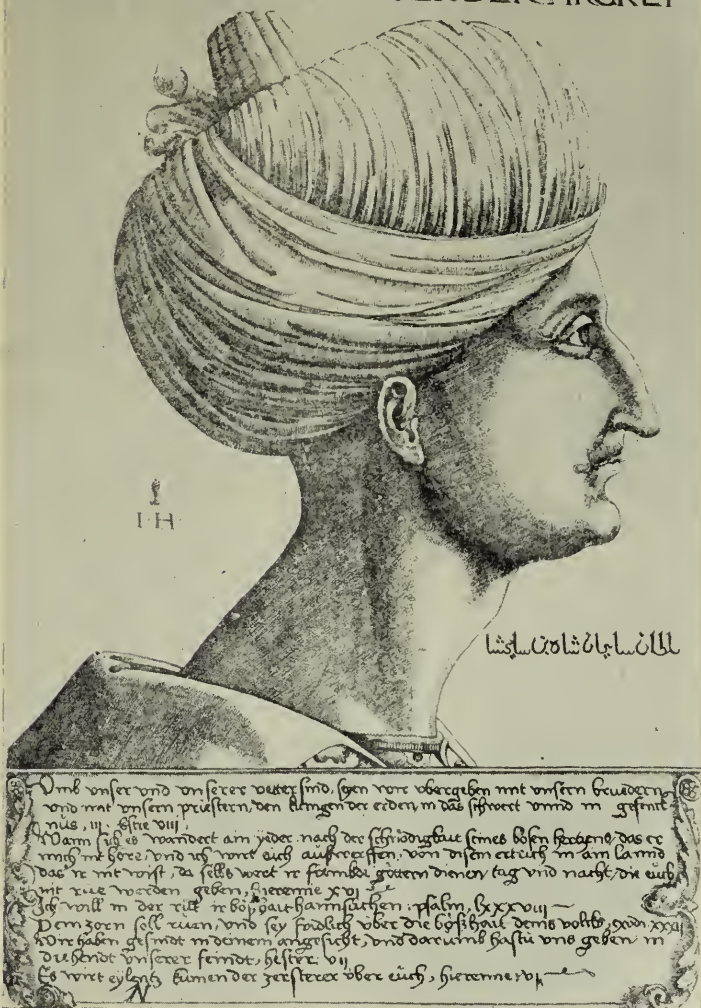 I·H
سلطان سليمان شاه بن سليمشا
Umb unser und unserer vetter sind, seyen wir ubergeben mit unsern bruedern,
und mit unsern priestern, den kungen der erden, in das schwert unnd in gefenck
nüs, iii· Estre viii,
Wann sich es wandert ain yeder· nach der schnödigkait seines bösen hertzens, das er
mich nit höre, und ich wirt eich aufwerffen, von disem ertrich in ain lannd
das ir nit wist, da selbs wert ir frembde göttern dienen, tag und nacht, die euch
nit rue werden geben, hieremie xvi
Ich will in der rüt ir boßhait haimsuchen: psalm, lxxxviii
Dein zorn soll ruen, und sey fridlich über die boßhait deins volcks, exodi· xxxii
Wir haben gesundt in deinem angesicht, und darumb hastu uns geben in
die hendt unserer feindt, hester, vii
Es wirt eylentz kumen der zersterer über euch, hieremie, vi